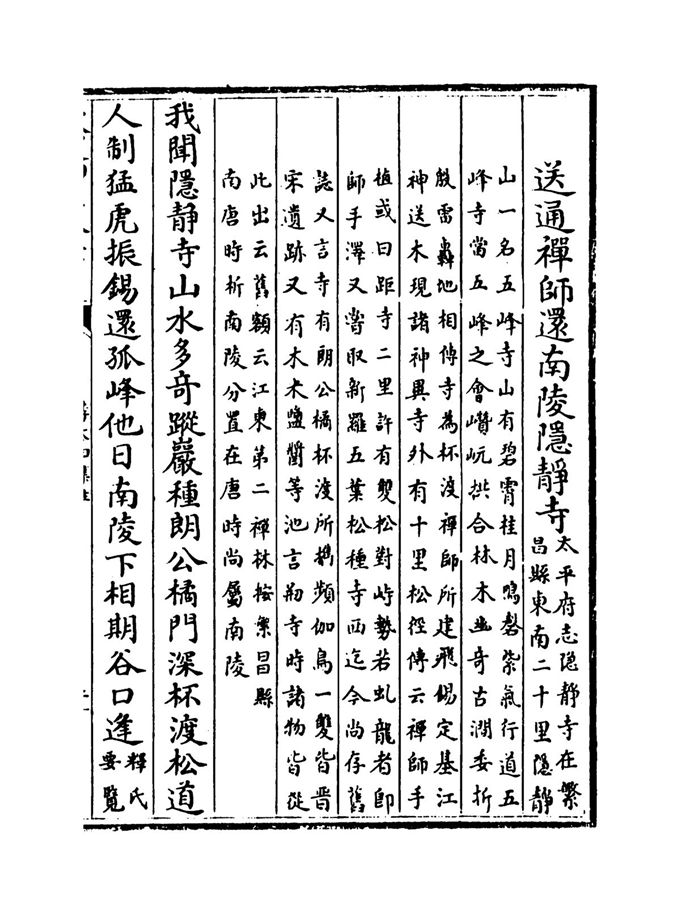 送通禪師還南陵隱靜寺太平府志隱靜寺在繁
昌縣東南二十里隱靜
山一名五峰寺山有碧霄桂月鳴磬紫氣行道五
峰寺當五峰之會巑岏拱合林木幽奇古澗委折
殷雷轟地相傳寺為杯渡禪師所建飛錫定基江
神送木現諸神異寺外有十里松徑傳云禪師手
植或曰距寺二里許有雙松對峙勢若虬龍者即
師手澤又嘗取新羅五葉松種寺西迄今尚存舊
誌又言寺有朗公橘杯渡所携頻伽鳥一雙皆晋
宋遺跡又有木米鹽醬等池言剏寺時諸物皆從
此出云舊額云江東第二禪林按繁昌縣
南唐時析南陵分置在唐時尚屬南陵
我聞隱靜寺山水多竒蹤巖種朗公橘門深杯渡松道
人制猛虎振錫還孤峰他日南陵下相期谷口逢釋氏
要覽